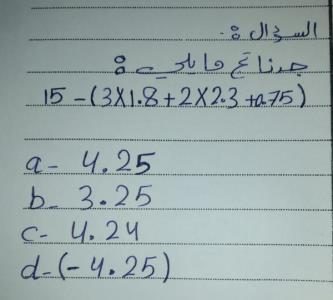 السؤال :-
جد ناتج ما يلي :
15 - (3X1.8 + 2X2.3 + 0.75)
a- 4.25
b- 3.25
c- 4.24
d- (-4.25)